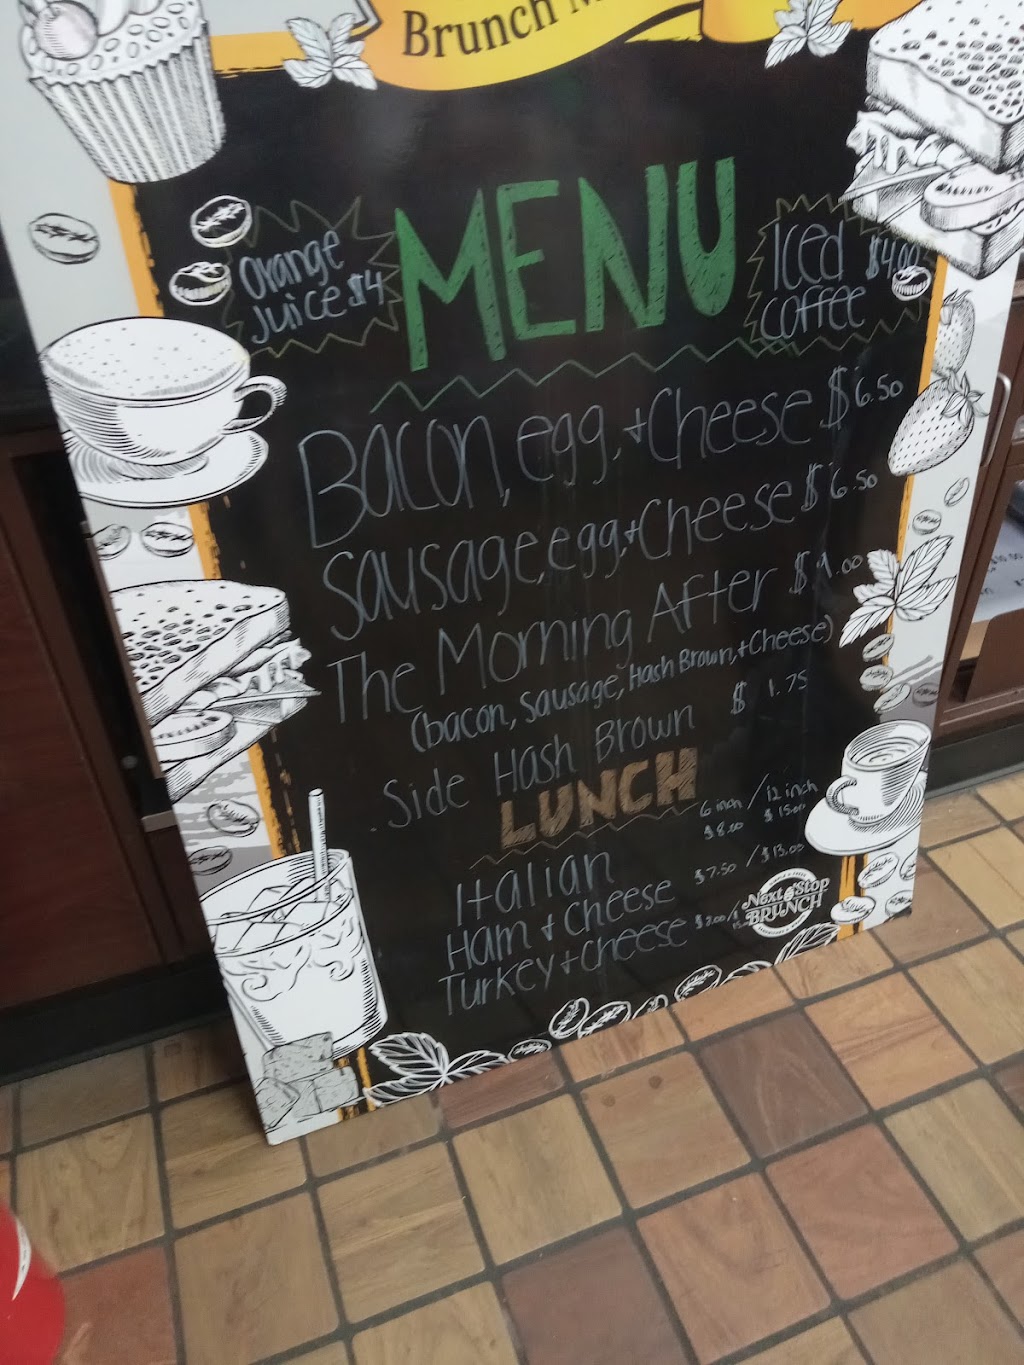 Brunch
MENU
Orange
Juice $4
Iced $4.00
Coffee
Bacon, egg, + Cheese $6.50
Sausage, egg, + Cheese $6.50
The Morning After $9.00
(bacon, Sausage, Hash Brown, + Cheese)
Side Hash Brown $1.75
LUNCH
6 inch / 12 inch
Italian $8.00 $15.00
Ham + Cheese $7.50 / $13.00
Turkey + Cheese
Next Stop
BRUNCH